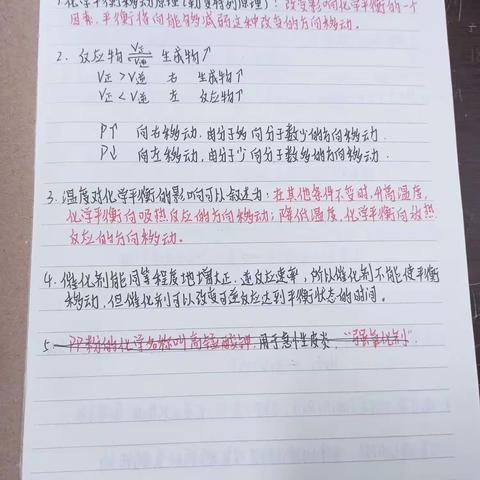 1. 化学平衡移动原理(勒夏特列原理): 改变影响化学平衡的一个
因素, 平衡将向能够减弱这种改变的方向移动.
2. 反应物 V正 V逆 生成物↑
V正 > V逆 右 生成物↑
V正 < V逆 左 反应物↑
P↑ 向右移动, 由分子多向分子数少的方向移动.
P↓ 向左移动, 由分子少向分子数多的方向移动.
3. 温度对化学平衡的影响可以叙述为: 在其他条件不变时, 升高温度,
化学平衡向吸热反应的方向移动; 降低温度, 化学平衡向放热
反应的方向移动。
4. 催化剂能同等程度地增大正、逆反应速率, 所以催化剂不能使平衡
移动, 但催化剂可以改变可逆反应达到平衡状态的时间。
5. PP粉的化学名称叫高锰酸钾, 用于 "强氧化剂".